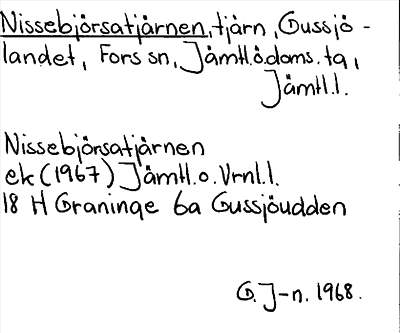 Nissebjörsatjärnen, tjärn, Gussjö-
landet, Fors sn, Jämtl.ö.doms. tg,
Jämtl.l.
Nissebjörsatjärnen
ek (1967) Jämtl.o.Vrnl.l.
18 H Graninge 6a Gussjöudden
G. J-n. 1968.